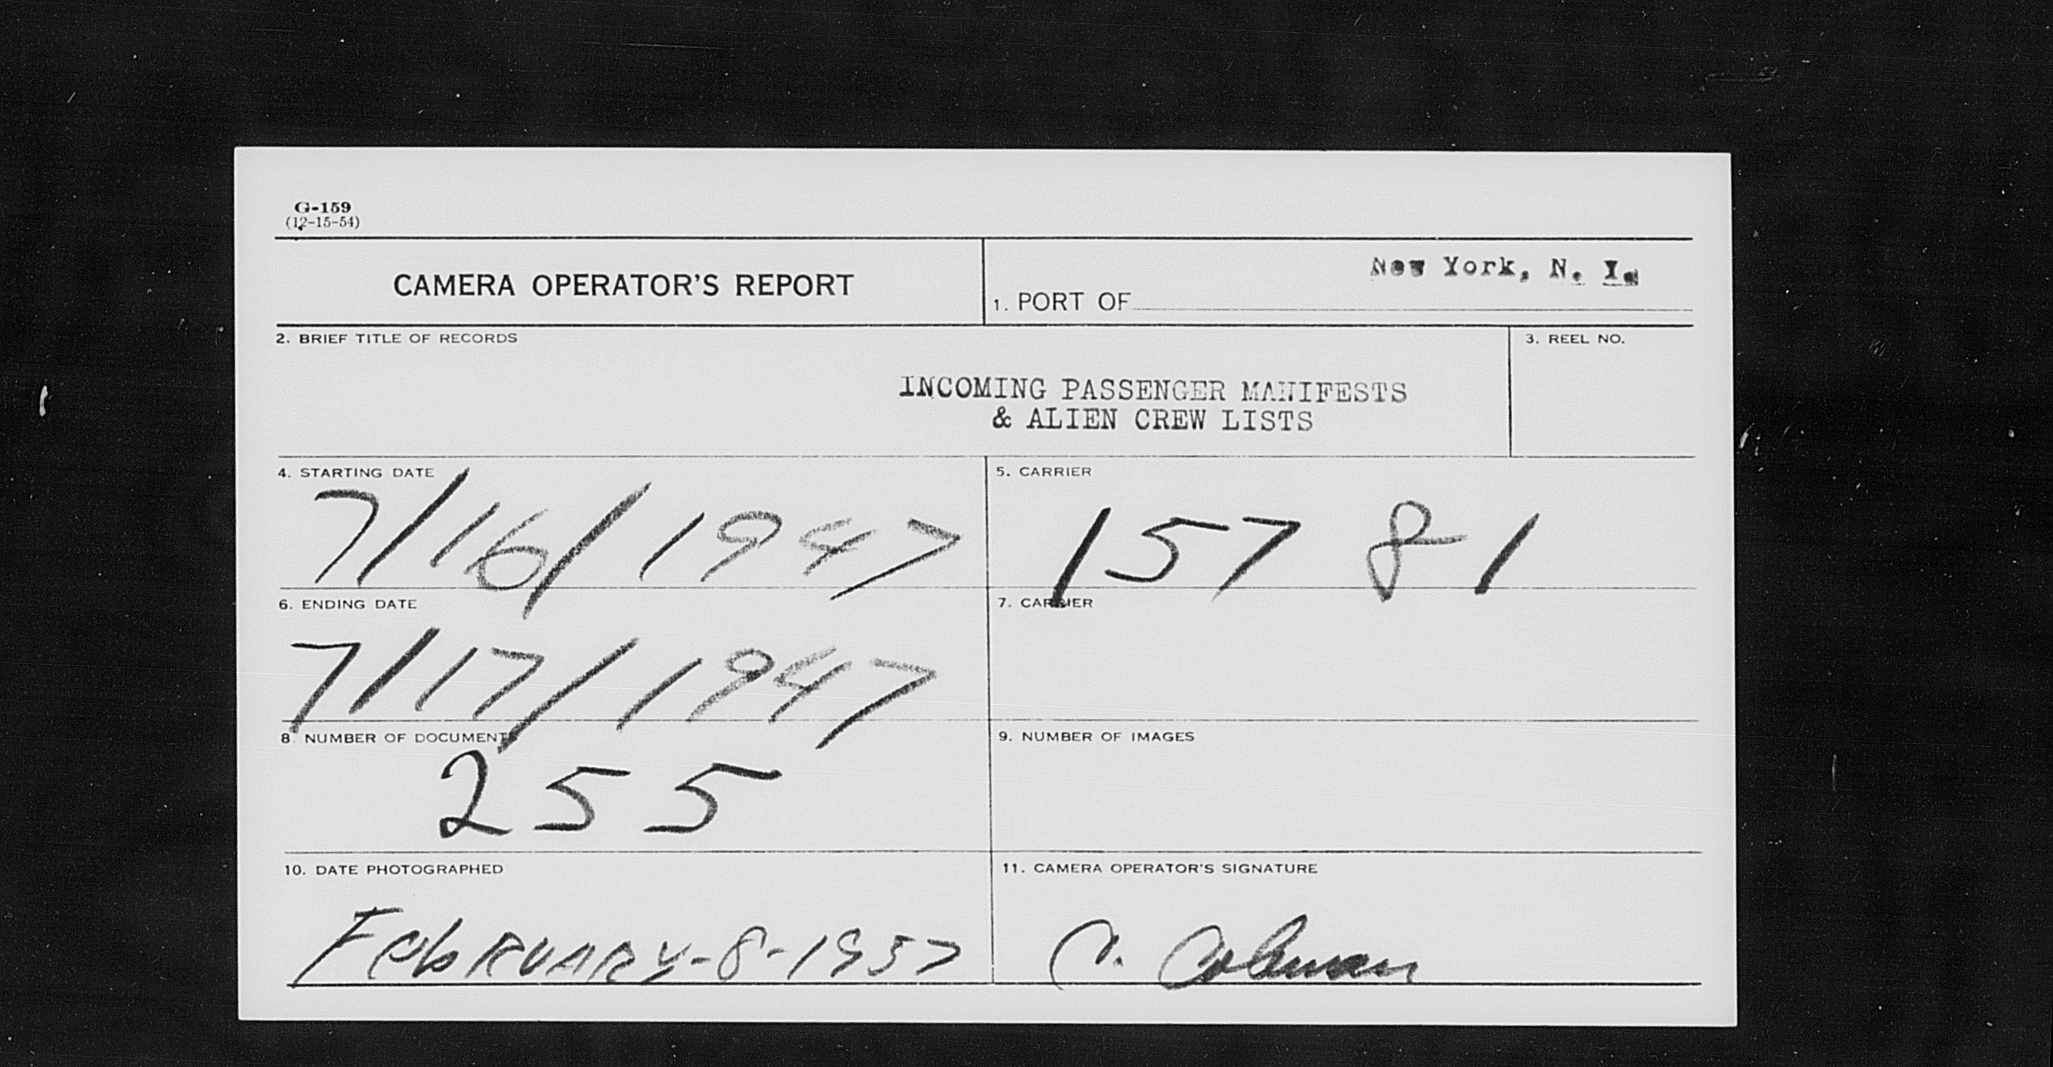 G-159
(12-15-54)
CAMERA OPERATOR'S REPORT
1. PORT OF New York, N. Y.
2. BRIEF TITLE OF RECORDS
INCOMING PASSENGER MANIFESTS
& ALIEN CREW LISTS
3. REEL NO.
4. STARTING DATE
7/16/1947
5. CARRIER
157 81
6. ENDING DATE
7/17/1947
7. CARRIER
8. NUMBER OF DOCUMENTS
255
9. NUMBER OF IMAGES
10. DATE PHOTOGRAPHED
FebRUARY-8-1957
11. CAMERA OPERATOR'S SIGNATURE
C.